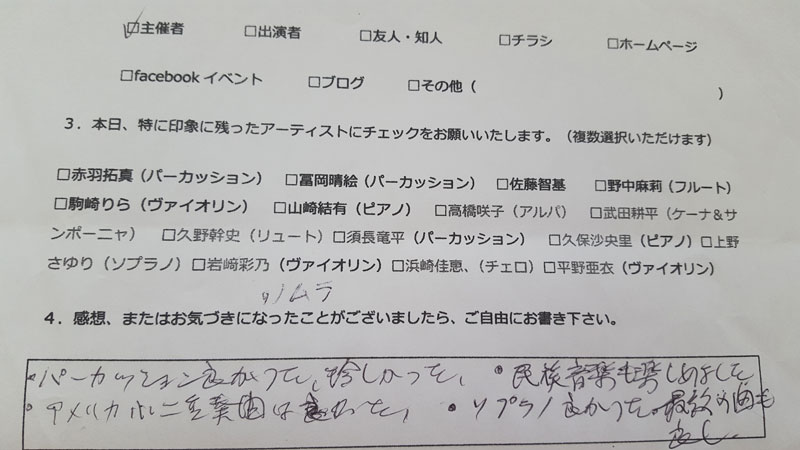 ☑主催者 □出演者 □友人・知人 □チラシ □ホームページ
□facebook イベント □ブログ □その他（ ）
3．本日、特に印象に残ったアーティストにチェックをお願いいたします。（複数選択いただけます）
□赤羽拓真（パーカッション） □冨岡晴絵（パーカッション） □佐藤智基 □野中麻莉（フルート）
□駒崎りら（ヴァイオリン） □山崎結有（ピアノ） □高橋咲子（アルパ） □武田耕平（ケーナ&サ
ンポーニャ） □久野幹史（リュート）□須長竜平（パーカッション） □久保沙央里（ピアノ）□上野
さゆり（ソプラノ）□岩﨑彩乃（ヴァイオリン）□浜崎佳恵、（チェロ）□平野亜衣（ヴァイオリン）
ソノムラ
4．感想、またはお気づきになったことがございましたら、ご自由にお書き下さい。
・パーカッション良かった、珍しかった、 ・民族音楽も楽しめました
・アメリカ 二重奏曲は良かった、 ・ソプラノ良かった。最後の曲も
良し。